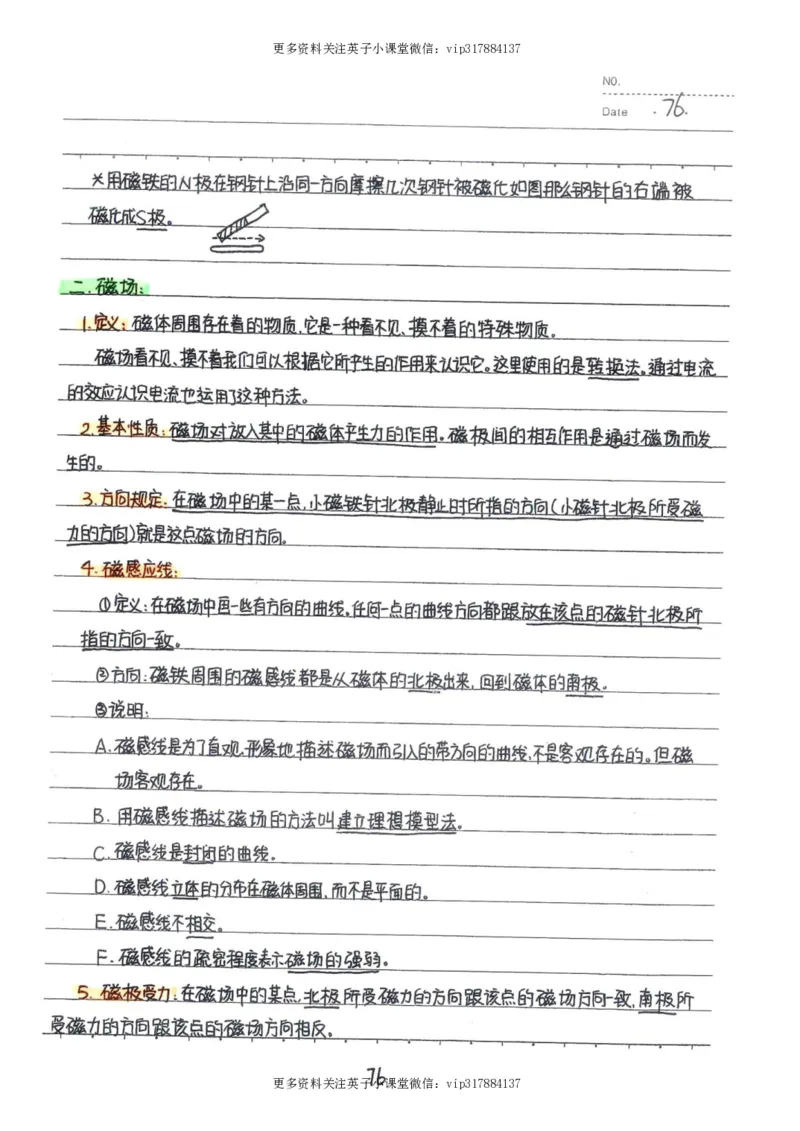 更多资料关注英子小课堂微信：vip317884137
NO.
Date . 76.
*用磁铁的N极在钢针上沿同一方向摩擦几次钢针被磁化如图那么钢针的右端被
磁化成S极。
二.磁场:
1.定义:磁体周围存在着的物质,它是一种看不见、摸不着的特殊物质。
磁场看不见、摸不着我们可以根据它所产生的作用来认识它。这里使用的是转换法。通过电流
的效应认识电流也运用了这种方法。
2.基本性质:磁场对放入其中的磁体产生力的作用。磁极间的相互作用是通过磁场而发
生的。
3.方向规定.在磁场中的某一点,小磁铁针北极静止时所指的方向(小磁针北极所受磁
力的方向)就是这点磁场的方向。
4.磁感应线:
①定义:在磁场中画一些有方向的曲线。任何一点的曲线方向都跟放在该点的磁针北极所
指的方向一致。
②方向:磁铁周围的磁感线都是从磁体的北极出来,回到磁体的南极。
③说明:
A.磁感线是为了直观、形象地描述磁场而引入的带方向的曲线,不是客观存在的。但磁
场客观存在。
B.用磁感线描述磁场的方法叫建立理想模型法。
C.磁感线是封闭的曲线。
D.磁感线立体的分布在磁体周围,而不是平面的。
E.磁感线不相交。
F.磁感线的疏密程度表示磁场的强弱。
5.磁极受力:在磁场中的某点,北极所受磁力的方向跟该点的磁场方向一致,南极所
受磁力的方向跟该点的磁场方向相反。
76
更多资料关注英子小课堂微信：vip317884137